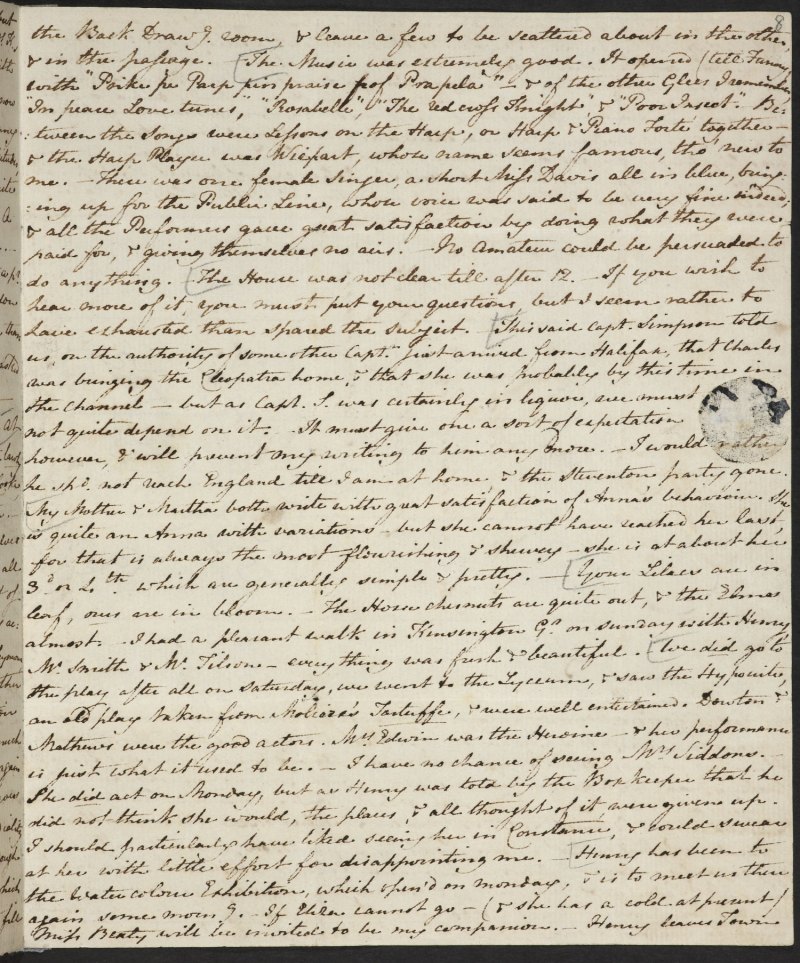 8
the Back Draw g. room, & leave a few to be scattered about in the other,
& in the passage. [The Music was extremely good. It opened (tell Fanny)
with "Poike pe Parp pin praise pof Prapela" — & of the other Glees I remember
"In peace Love tunes", "Rosabelle", "The red cross Knight" & "Poor Insect". Be=
=tween the Songs were Lessons on the Harp, or Harp & Piano Forte together —
& the Harp Player was Wiepart, whose name seems famous, tho' new to
me. — There was one female singer, a short Miss Davis all in blue, bring=
=ing up for the Public Line, whose voice was said to be very fine indeed;
& all the Performers gave great satisfaction by doing what they were
paid for, & giving themselves no airs. — No Amateur could be persuaded to
do anything. [The House was not clear till after 12. — If you wish to
hear more of it, you must put your questions, but I seem rather to
have exhausted than spared the subject. [This said Capt. Simpson told
us, on the authority of some other Capt. just arrived from Halifax, that Charles
was bringing the Cleopatra home, & that she was probably by this time in
the Channel — but as Capt. S. was certainly in liquor, we must
not quite depend on it. — It must give one a sort of expectation
however, & will prevent my writing to him any more. — I would rather
he shd. not reach England till I am at home & the Steventon party gone.
My Mother & Martha both write with great satisfaction of Anna's behaviour. She
is quite an Anna with variations — but she cannot have reached her last
for that is always the most flourishing & shewey — she is at about her
3d. or 4th. which are generally simple & pretty. — [Your Lilacs are in
leaf, ours are in bloom. — The Horse chesnuts are quite out, & the Elms
almost. — I had a pleasant walk in Kensington Gs. on Sunday with Henry,
Mr. Smith & Mr. Tilson — every thing was fresh & beautiful. [We did go to
the play after all on Saturday, we went to the Lyceum, & saw the Hypocrite,
an old play taken from Moliere's Tartuffe, & were well entertained. Dowton &
Mathews were the good actors. Mrs. Edwin was the Heroine — & her performance
is just what it used to be. — I have no chance of seeing Mrs. Siddons. —
She did act on Monday, but as Henry was told by the Boxkeeper that he
did not think she would, the places, & all thought of it, were given up.
I should particularly have liked seeing her in Constance, & could swear
at her with little effort for disappointing me. — [Henry has been to
the Watercolour Exhibition, which open'd on monday, & is to meet us there
again some morng. — If Eliza cannot go — (& she has a cold at present)
Miss Beaty will be invited to be my companion. — Henry leaves Town